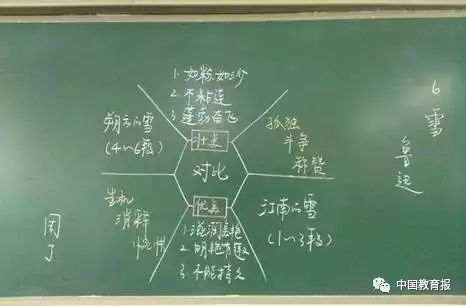 6 雪
鲁迅
1. 如粉、如沙
2. 不粘连
3. 蓬勃奋飞
壮美
朔方的雪
(4~6段)
孤独
斗争
称赞
对比
生机
消释
优美
1. 滋润美艳
2. 明艳有趣
3. 不能持久
江南的雪
(1~3段)
中国教育报